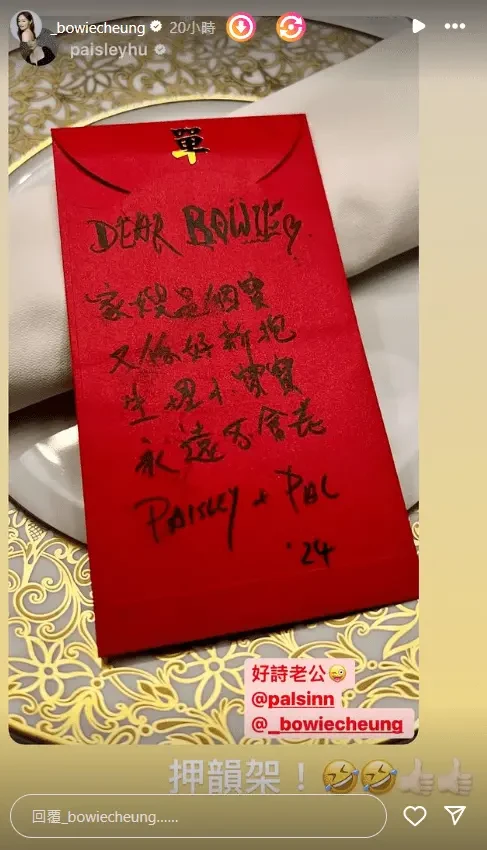 _bowiecheung 20小時
paisleyhu
單
DEAR BOWIE
家嫂是個寶
又係好新抱
生埋小寶寶
永遠不會老
PAISLEY + PAL
'24
好詩老公😜
@palsinn
@_bowiecheung
押韻架！🤣🤣👍🏻👍🏻
回覆_bowiecheung......